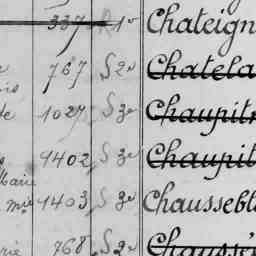 337 R 1e Chateign
767 S 2e Chatela
1027 S 3e Chaupitr
1402 S 3e Chaupit
Marie
1403 S 3e Chaussebl
768 S 2e Chauss